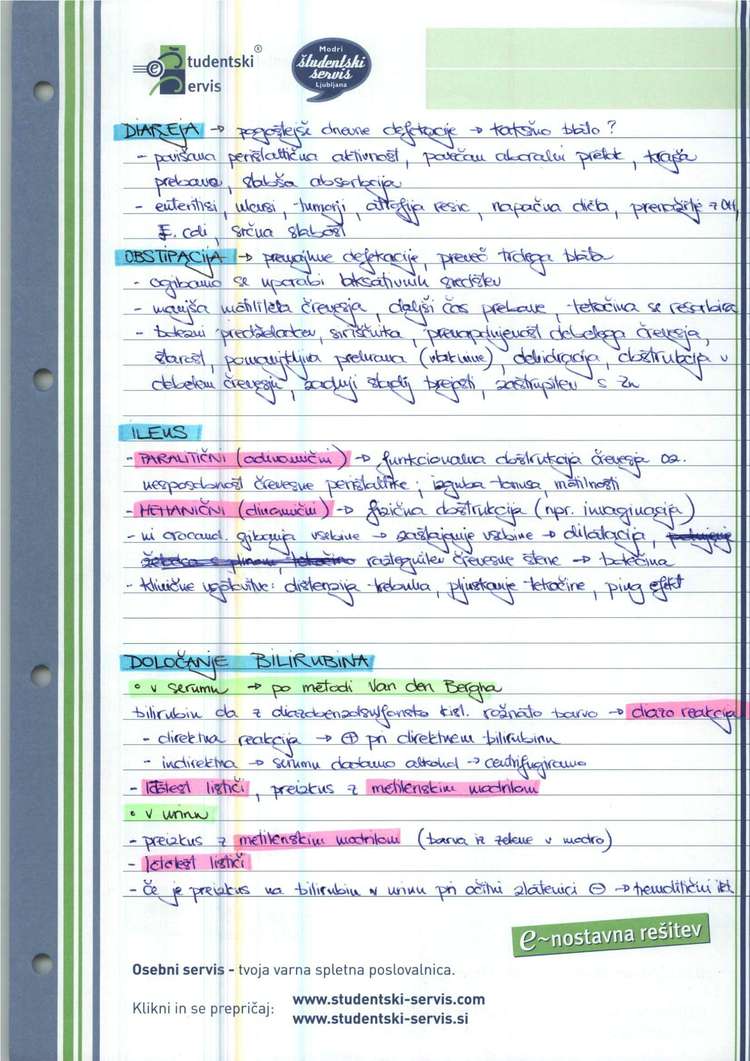 Študentski®
Servis
Modri
študentski
servis
Ljubljana
DIAREJA → pogostejše dnevne defekacije → kakšno blato?
- povišana peristaltična aktivnost, povečan aboralni pretok, krajša
prebava, slabša absorbcija
- enteritisi, ulkusi, tumorji, atrofija resic, napačna dieta, prenažrtje z OH,
E. coli, srčna slabost
OBSTIPACIJA → premajhne defekacije, preveč trdega blata
- ogibamo se uporabi laksativnih sredstev
- manjša motiliteta črevesja, daljši čas prebave, tekočina se resorbira
- bolezni predželodcev, siriščnika, prenapolnjenost debelega črevesja,
starost, pomanjkljiva prehrana (vlaknine), dehidracija, obstrukcija v
debelem črevesju, zadnji stadij brejosti, zastrupitev s Zn
ILEUS
- PARALITIČNI (adinamični) → funkcionalna obstrukcija črevesja oz.
nesposobnost črevesne peristaltike; izguba tonusa, motilnosti
- MEHANIČNI (dinamični) → fizična obstrukcija (npr. invaginacija)
- ni aboral. gibanja vsebine → zastajanje vsebine → dilatacija,
raztegnitev črevesne stene → bolečina
- klinične ugotovitve: distenzija trebuha, pljuskanje tekočine, ping efekt
DOLOČANJE BILIRUBINA
• v serumu → po metodi Van den Bergha
bilirubin da z diazobenzolsulfonsko kisl. rožnato barvo → diazo reakcija
- direktna reakcija → ⊕ pri direktnem bilirubinu
- indirektna → serumu dodamo alkohol → centrifugiramo
- Ictotest lističi, preizkus z metilenskim modrilom
• v urinu
- preizkus z metilenskim modrilom (barva iz zelene v modro)
- Ictotest lističi
- če je preizkus na bilirubin v urinu pri očitni zlatenici ⊖ → hemolitični ikt.
e~nostavna rešitev
Osebni servis - tvoja varna spletna poslovalnica.
Klikni in se prepričaj:
www.studentski-servis.com
www.studentski-servis.si